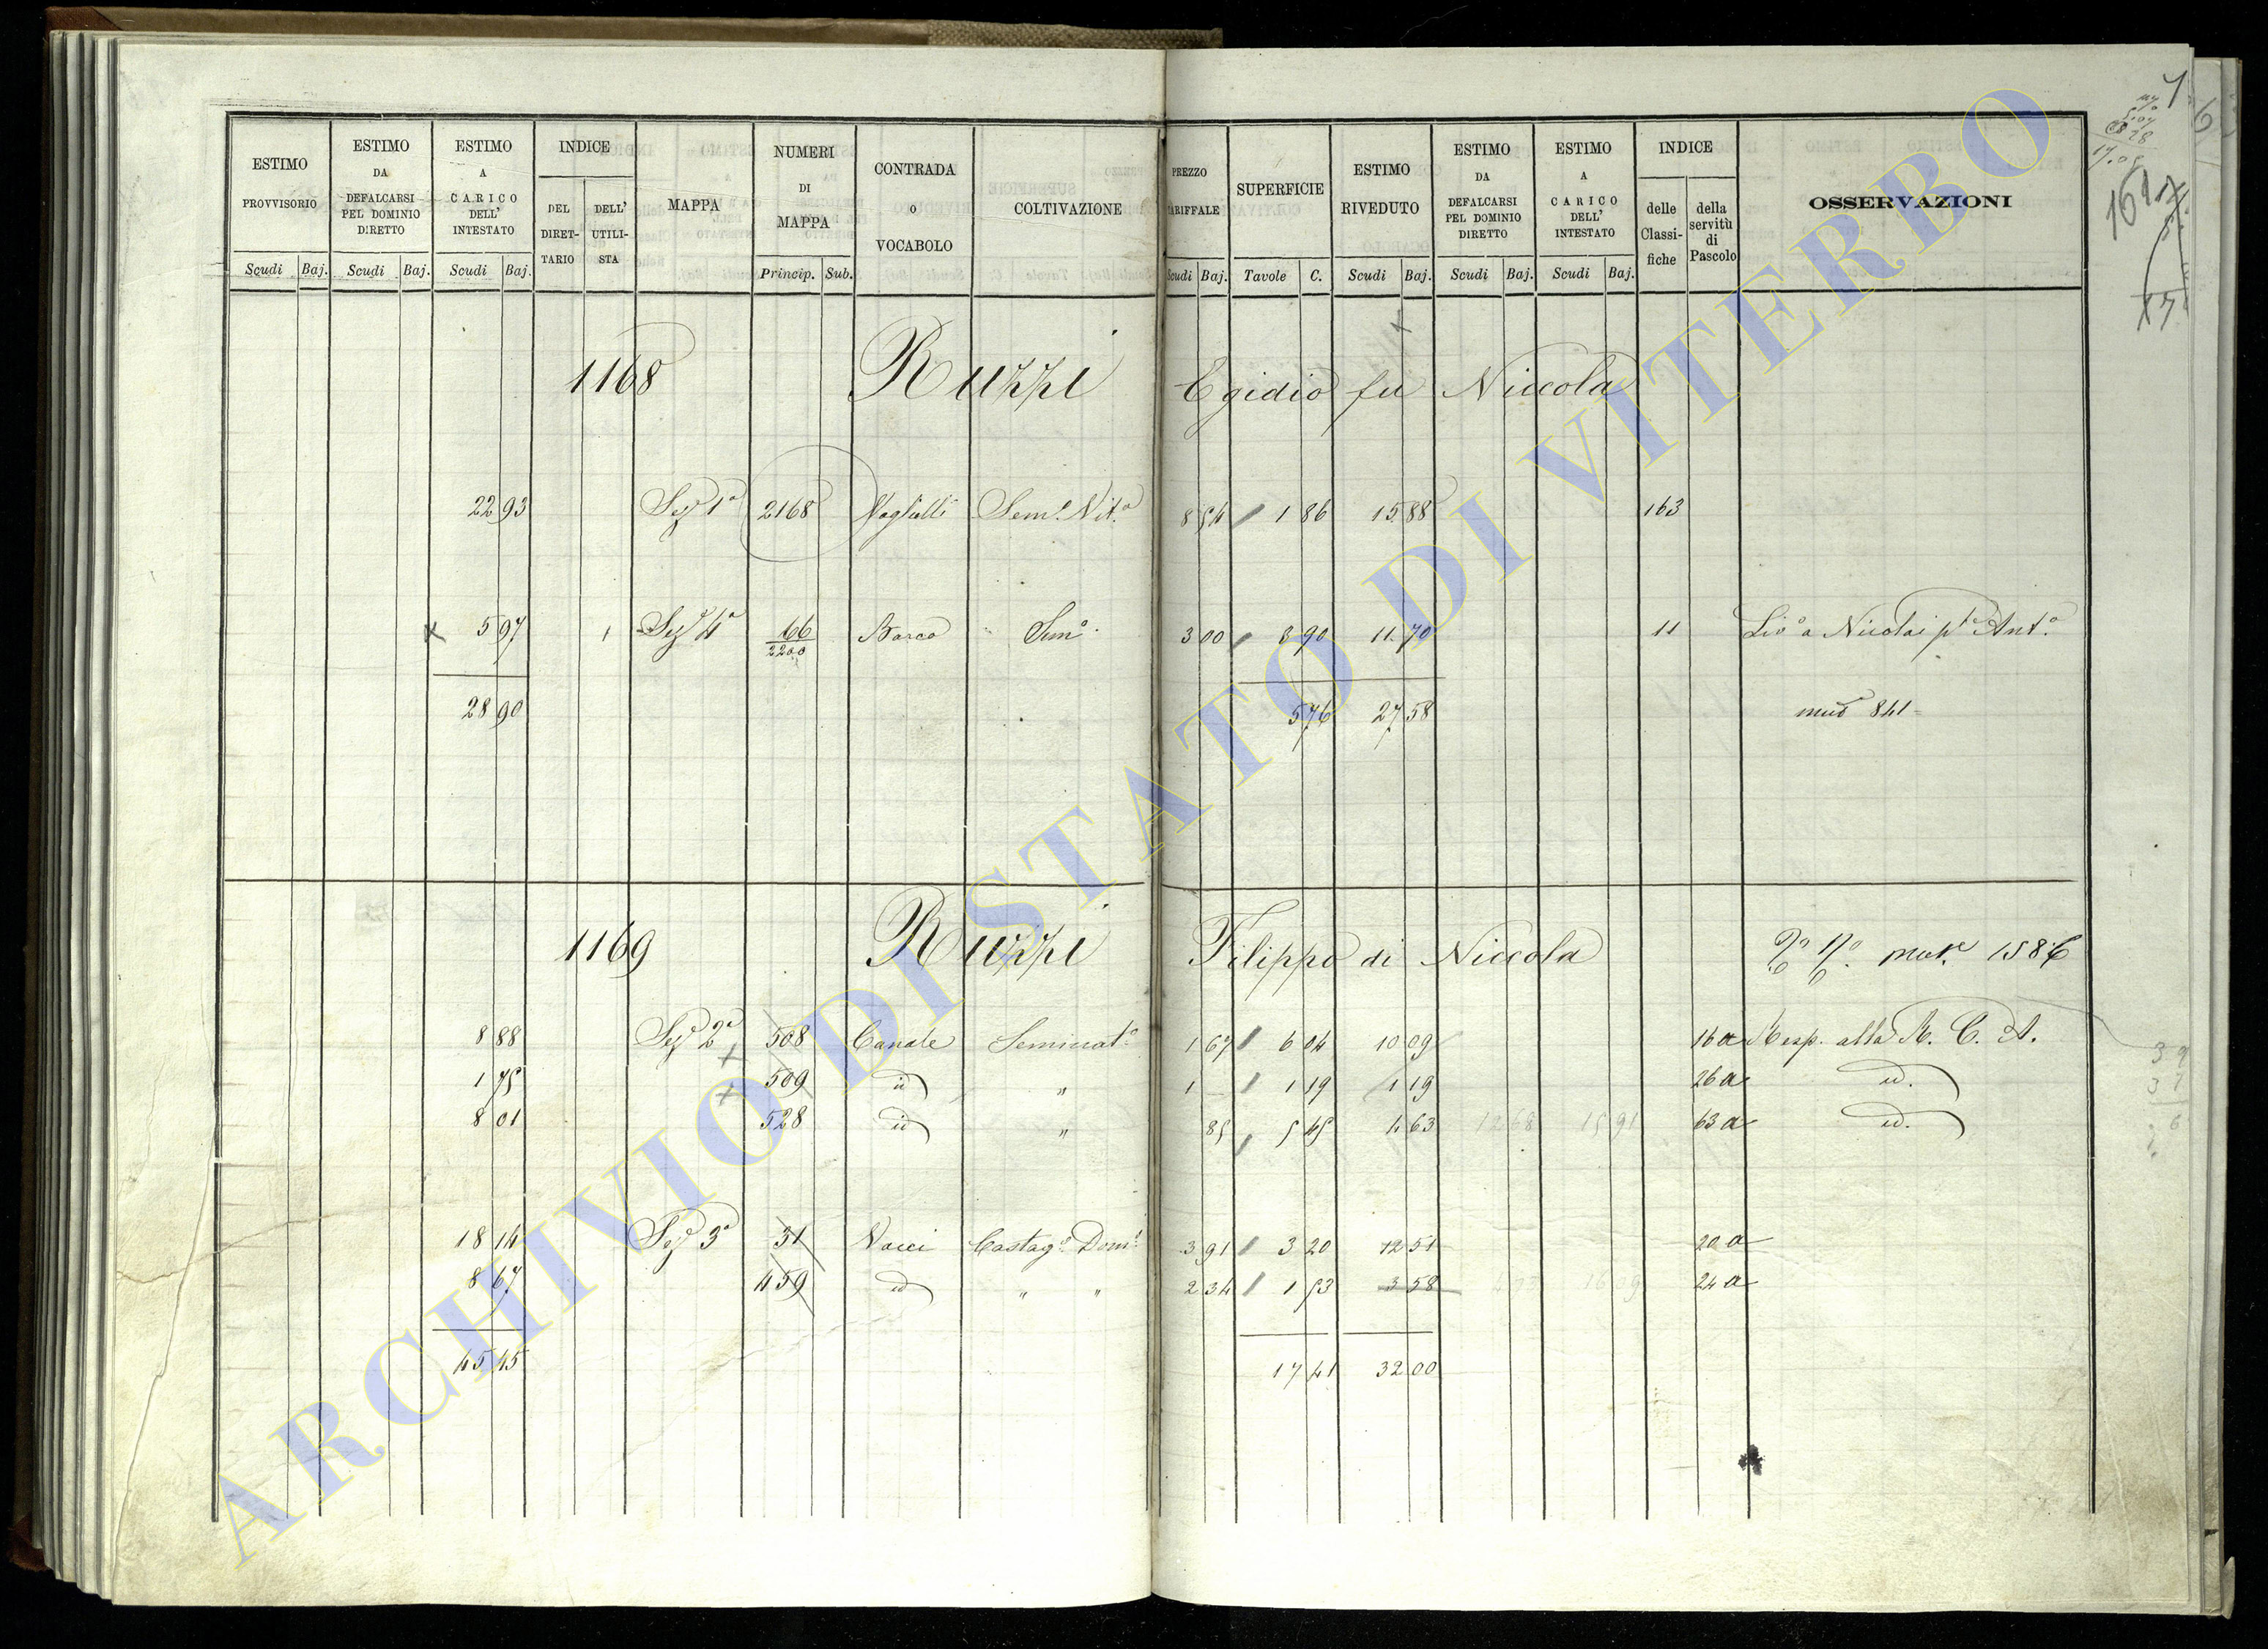 ESTIMO PROVVISORIO Scudi Baj.
ESTIMO DA DEFALCARSI PEL DOMINIO DIRETTO Scudi Baj.
ESTIMO A CARICO DELL' INTESTATO Scudi Baj.
INDICE DEL DIRET- TARIO DELL' UTILI- STA
MAPPA
NUMERI DI MAPPA Princip. Sub.
CONTRADA o VOCABOLO
COLTIVAZIONE
PREZZO TARIFFALE Scudi Baj.
SUPERFICIE Tavole C.
ESTIMO RIVEDUTO Scudi Baj.
ESTIMO DA DEFALCARSI PEL DOMINIO DIRETTO Scudi Baj.
ESTIMO A CARICO DELL' INTESTATO Scudi Baj.
INDICE delle Classi- fiche della servitù di Pascolo
OSSERVAZIONI
1168 Ruzzi Egidio fu Niccola
22 93 Sez. 1a 2168 Sem.o Vit.o 8 54 1 86 15 88 163
5 97 1 Sez. 4a 66 2200 Barco Sem.o 3 00 3 90 11 70 11 Liv.o a Nicolai Ant.o
28 90 5 76 27 58 841
1169 Ruzzi Filippo di Niccola 1586
8 88 Sez. 2a 508 Canale Seminat.o 1 67 6 04 10 09 16 a Resp. alla R. C. A.
1 75 509 id " 1 — 1 19 1 19 26 a id.
8 01 528 id " 85 5 45 4 63 12 68 15 91 63 a id.
18 14 Sez. 3a 31 Vacci Castag.o Dom.o 3 91 3 20 12 51 20 a
8 67 459 id " " 2 34 1 53 3 58 24 a
45 45 17 41 32 00
ARCHIVIO DI STATO DI VITERBO